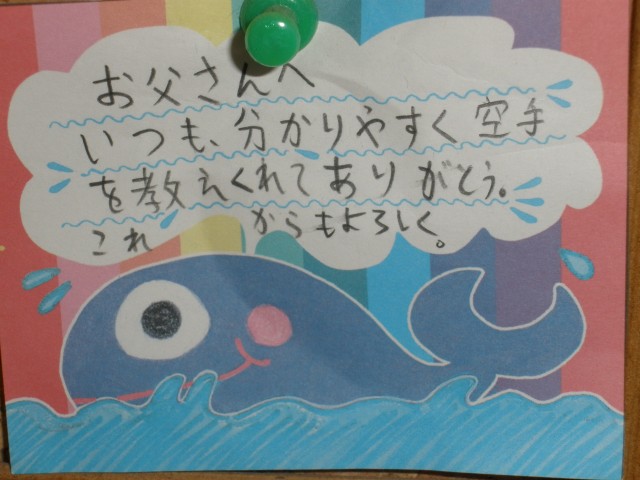 お父さんへ
いつも、分かりやすく空手
を教えくれてありがとう。
これからもよろしく。